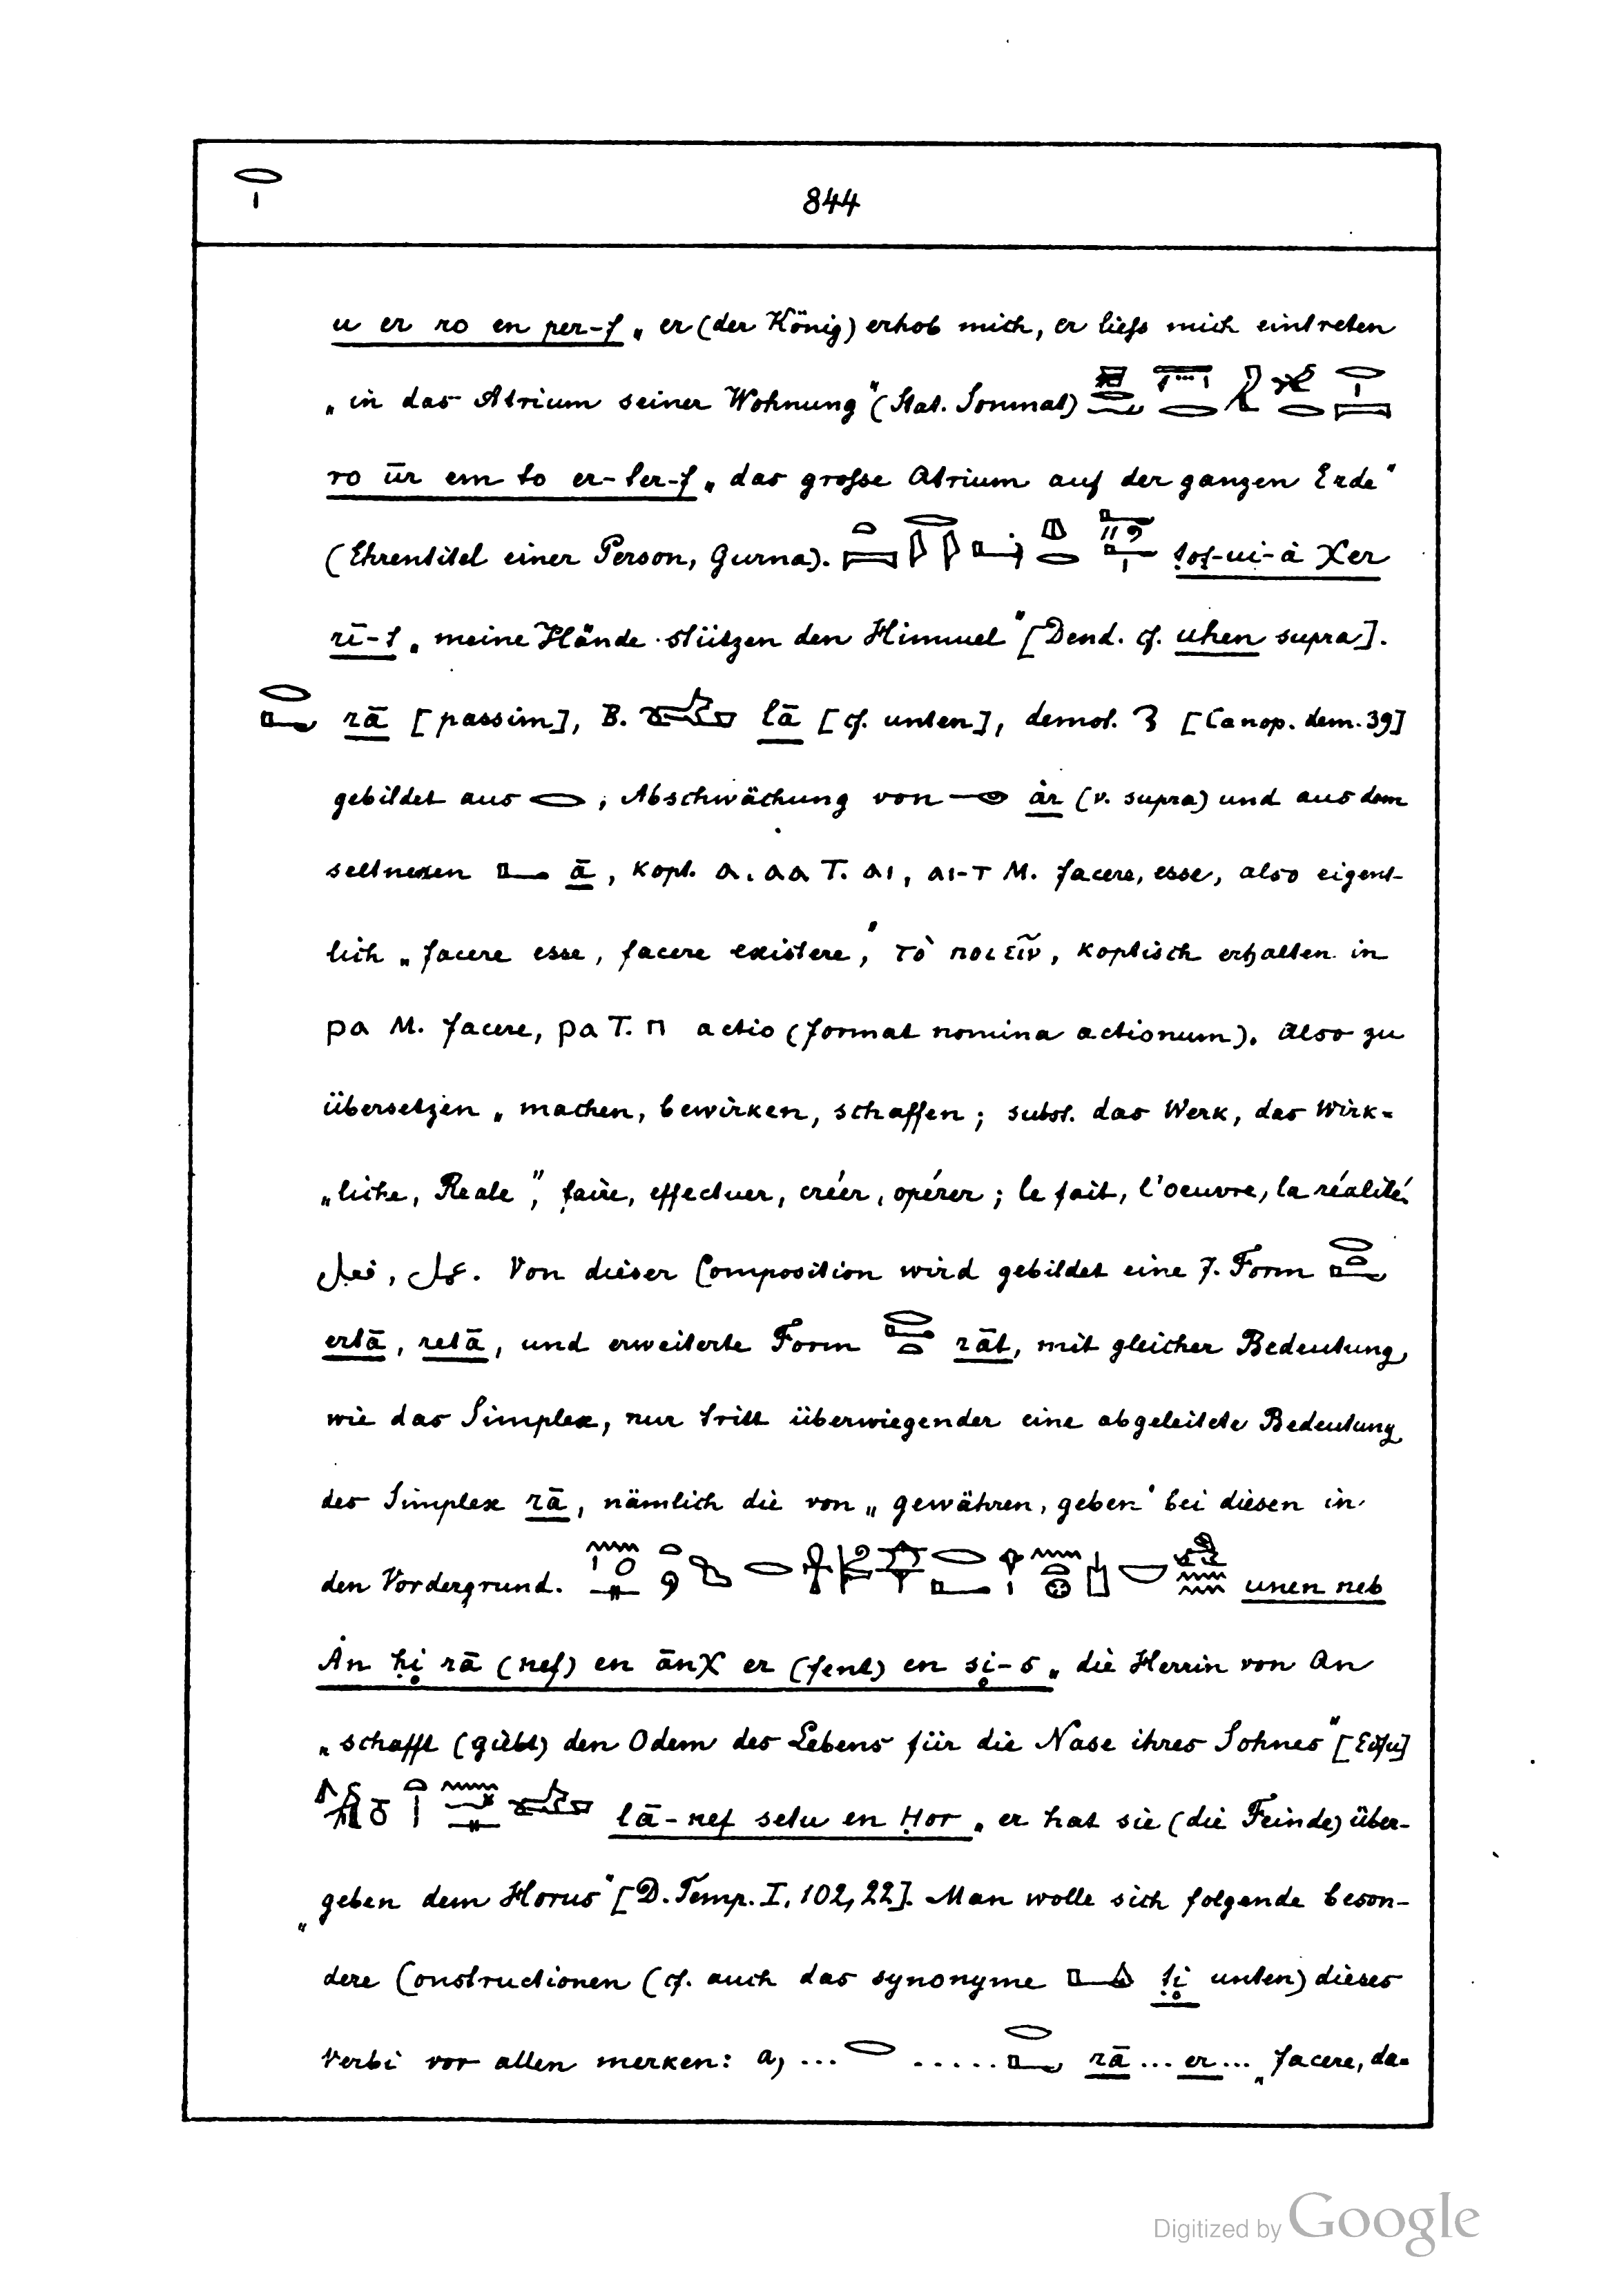 844
u er ro en per-f „er (der König) erhob mich, er liefs mich eintreten
„in das Atrium seiner Wohnung“ (Stat. Sonmat)
ro ūr em to er-ter-f „das grofse Atrium auf der ganzen Erde“
(Ehrentitel einer Person, Gurna). ṭoṭ-ui-à χer
rī-t „meine Hände stützen den Himmel“ [Dend. cf. uhen supra].
rā [passim], B. lā [cf. unten], demot. [Canop. dem. 39]
gebildet aus , Abschwächung von àr (v. supra) und aus dem
seltneren ā, kopt. ⲁ. ⲁⲁ T. ⲁⲓ, ⲁⲓ-ⲧ M. facere, esse, also eigent-
lich „facere esse, facere existere“, τὸ ποιεῖν, koptisch erhalten in
ⲣⲁ M. facere, ⲣⲁ T. ⲡ actio (format nomina actionum). Also zu
übersetzen „machen, bewirken, schaffen; subst. das Werk, das Wirk-
„liche, Reale“, faire, effectuer, créer, opérer; le fait, l'oeuvre, la réalité
فعل , عمل. Von dieser Composition wird gebildet eine 7. Form
ertā, retā, und erweiterte Form rāt, mit gleicher Bedeutung,
wie das Simplex, nur tritt überwiegender eine abgeleitete Bedeutung
des Simplex rā, nämlich die von „gewähren, geben“ bei diesen in
den Vordergrund. unen neb
Ȧn ḥi rā (nef) en ānχ er (fent) en si-s „die Herrin von An
„schafft (giebt) den Odem des Lebens für die Nase ihres Sohnes“ [Edfu]
lā-nef setu en Ḥor „er hat sie (die Feinde) über-
„geben dem Horus“ [D. Temp. I, 102, 22]. Man wolle sich folgende beson-
dere Constructionen (cf. auch das synonyme ṭi unten) dieses
Verbi vor allen merken: a, ... ..... rā ... er ... „facere, da-
Digitized by Google